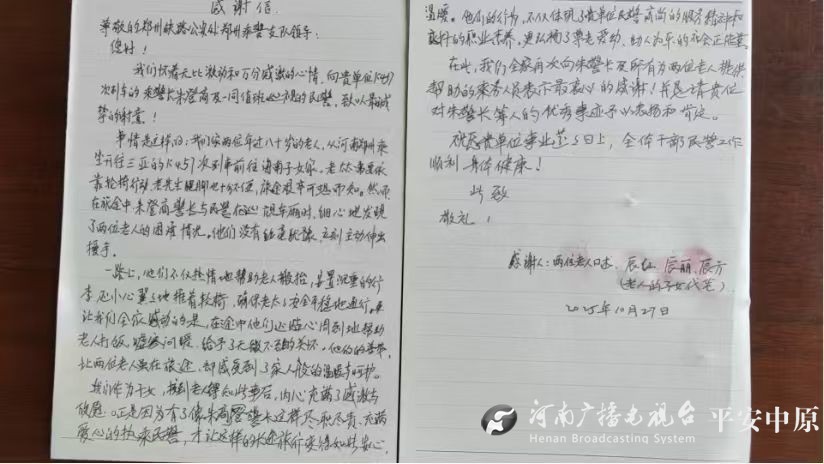 感谢信
尊敬的郑州铁路公安处郑州乘警支队领导:
您好!
我们怀着无比激动和万分感激的心情,向贵单位K457
次列车的乘警长朱登商及一同值班巡视的民警,致以最诚
挚的谢意!
事情是这样的:我们家两位年过八十岁的老人,从河南郑州乘
坐开往三亚的K457次列车前往海南子女家。老太太需要依
靠轮椅行动,老先生腿脚也十分不便,旅途艰辛可想而知。然而
在旅途中朱登商警长与民警在巡视车厢时,细心地发现
了两位老人的困难情况。他们没有丝毫犹豫,立刻主动伸出
援手。
一路上,他们不仅热情地帮助老人搬抬、安置沉重的行
李,还小心翼翼地推着轮椅,确保老太太安全平稳地通行。更
让我们全家感动的是,在途中他们还贴心周到地帮助
老人打饭,嘘寒问暖,给予了无微不至的关怀。他们的善举,
让两位老人虽在旅途,却感受到了家人般的温暖与呵护。
我们作为子女,接到老人得知此事后,内心充满了感激与
敬意。正是因为有了像朱商登警长这样尽职尽责、充满
爱心的热乘民警,才让这样的长途旅行变得如此安心、
温暖。他们的行为,不仅体现了贵单位民警高尚的服务精神和
良好的职业素养,更弘扬了尊老爱幼、助人为乐的社会正能量。
在此,我们全家再次向朱警长及所有为两位老人提供
帮助的乘务人员表示最衷心的感谢!并恳请贵单位
对朱警长等人的优秀事迹予以表扬和肯定。
祝愿贵单位事业蒸蒸日上,全体干部民警工作
顺利 身体健康!
此致
敬礼!
感谢人:两位老人口述、辰红、辰丽、辰方
(老人的子女代笔)
2025年10月27日
河南广播电视台 平安中原
Henan Broadcasting System